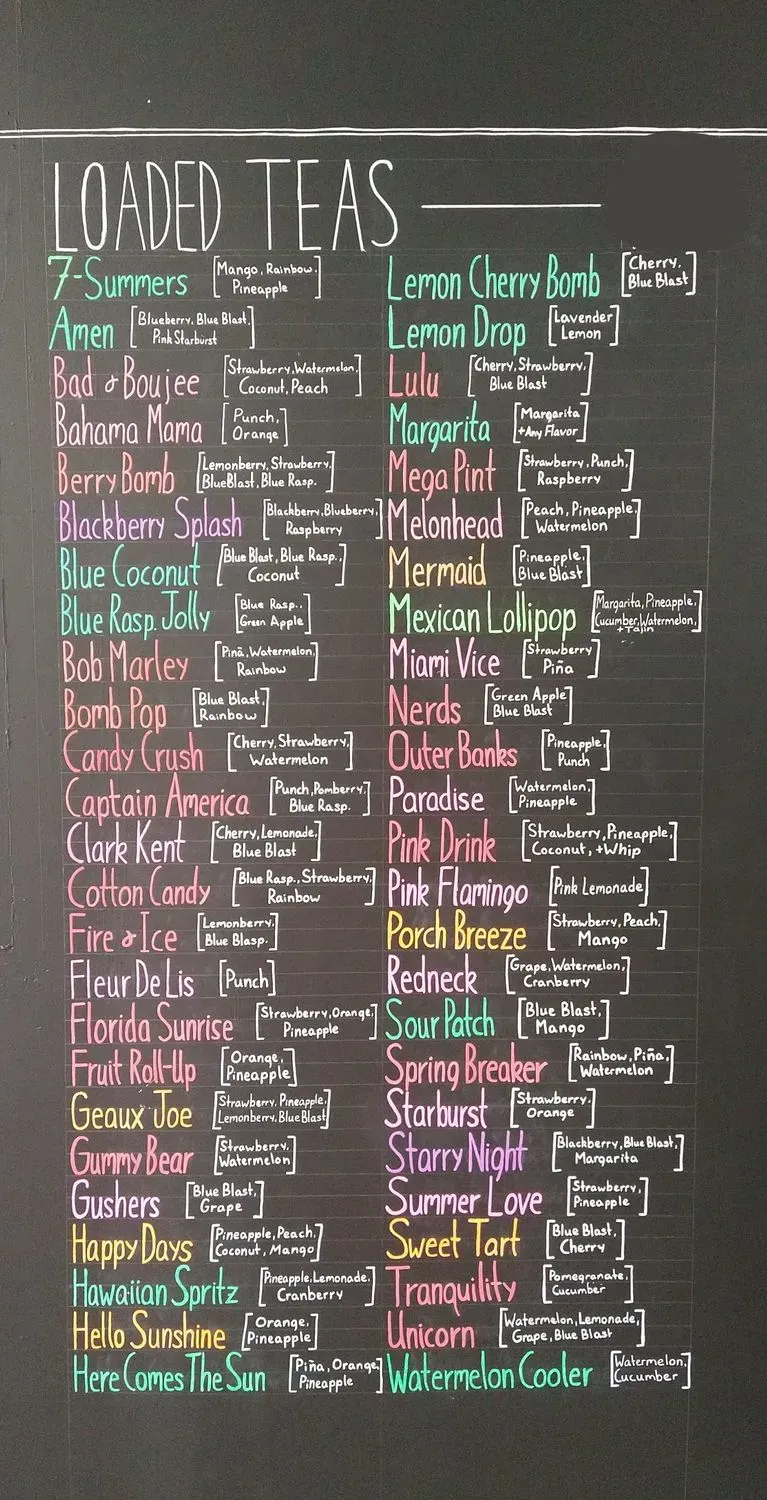 LOADED TEAS
7-Summers [Mango, Rainbow,
Pineapple]
Amen [Blueberry, Blue Blast,
Pink Starburst]
Bad & Boujee [Strawberry, Watermelon,
Coconut, Peach]
Bahama Mama [Punch,
Orange]
Berry Bomb [Lemonberry, Strawberry,
BlueBlast, Blue Rasp.]
Blackberry Splash [Blackberry, Blueberry,
Raspberry]
Blue Coconut [Blue Blast, Blue Rasp.,
Coconut]
Blue Rasp. Jolly [Blue Rasp.,
Green Apple]
Bob Marley [Pinã, Watermelon,
Rainbow]
Bomb Pop [Blue Blast,
Rainbow]
Candy Crush [Cherry, Strawberry,
Watermelon]
Captain America [Punch, Pomberry,
Blue Rasp.]
Clark Kent [Cherry, Lemonade,
Blue Blast]
Cotton Candy [Blue Rasp., Strawberry,
Rainbow]
Fire & Ice [Lemonberry,
Blue Blasp.]
Fleur De Lis [Punch]
Florida Sunrise [Strawberry, Orange,
Pineapple]
Fruit Roll-Up [Orange,
Pineapple]
Geaux Joe [Strawberry, Pineapple,
Lemonberry, Blue Blast]
Gummy Bear [Strawberry,
Watermelon]
Gushers [Blue Blast,
Grape]
Happy Days [Pineapple, Peach,
Coconut, Mango]
Hawaiian Spritz [Pineapple, Lemonade,
Cranberry]
Hello Sunshine [Orange,
Pineapple]
Here Comes The Sun [Piña, Orange,
Pineapple]
Lemon Cherry Bomb [Cherry,
Blue Blast]
Lemon Drop [Lavender
Lemon]
Lulu [Cherry, Strawberry,
Blue Blast]
Margarita [Margarita
+Any Flavor]
Mega Pint [Strawberry, Punch,
Raspberry]
Melonhead [Peach, Pineapple,
Watermelon]
Mermaid [Pineapple,
Blue Blast]
Mexican Lollipop [Margarita, Pineapple,
Cucumber, Watermelon,
+Tajin]
Miami Vice [Strawberry
Piña]
Nerds [Green Apple
Blue Blast]
Outer Banks [Pineapple,
Punch]
Paradise [Watermelon,
Pineapple]
Pink Drink [Strawberry, Pineapple,
Coconut, +Whip]
Pink Flamingo [Pink Lemonade]
Porch Breeze [Strawberry, Peach,
Mango]
Redneck [Grape, Watermelon,
Cranberry]
Sour Patch [Blue Blast,
Mango]
Spring Breaker [Rainbow, Piña,
Watermelon]
Starburst [Strawberry,
Orange]
Starry Night [Blackberry, Blue Blast,
Margarita]
Summer Love [Strawberry,
Pineapple]
Sweet Tart [Blue Blast,
Cherry]
Tranquility [Pomegranate,
Cucumber]
Unicorn [Watermelon, Lemonade,
Grape, Blue Blast]
Watermelon Cooler [Watermelon,
Cucumber]